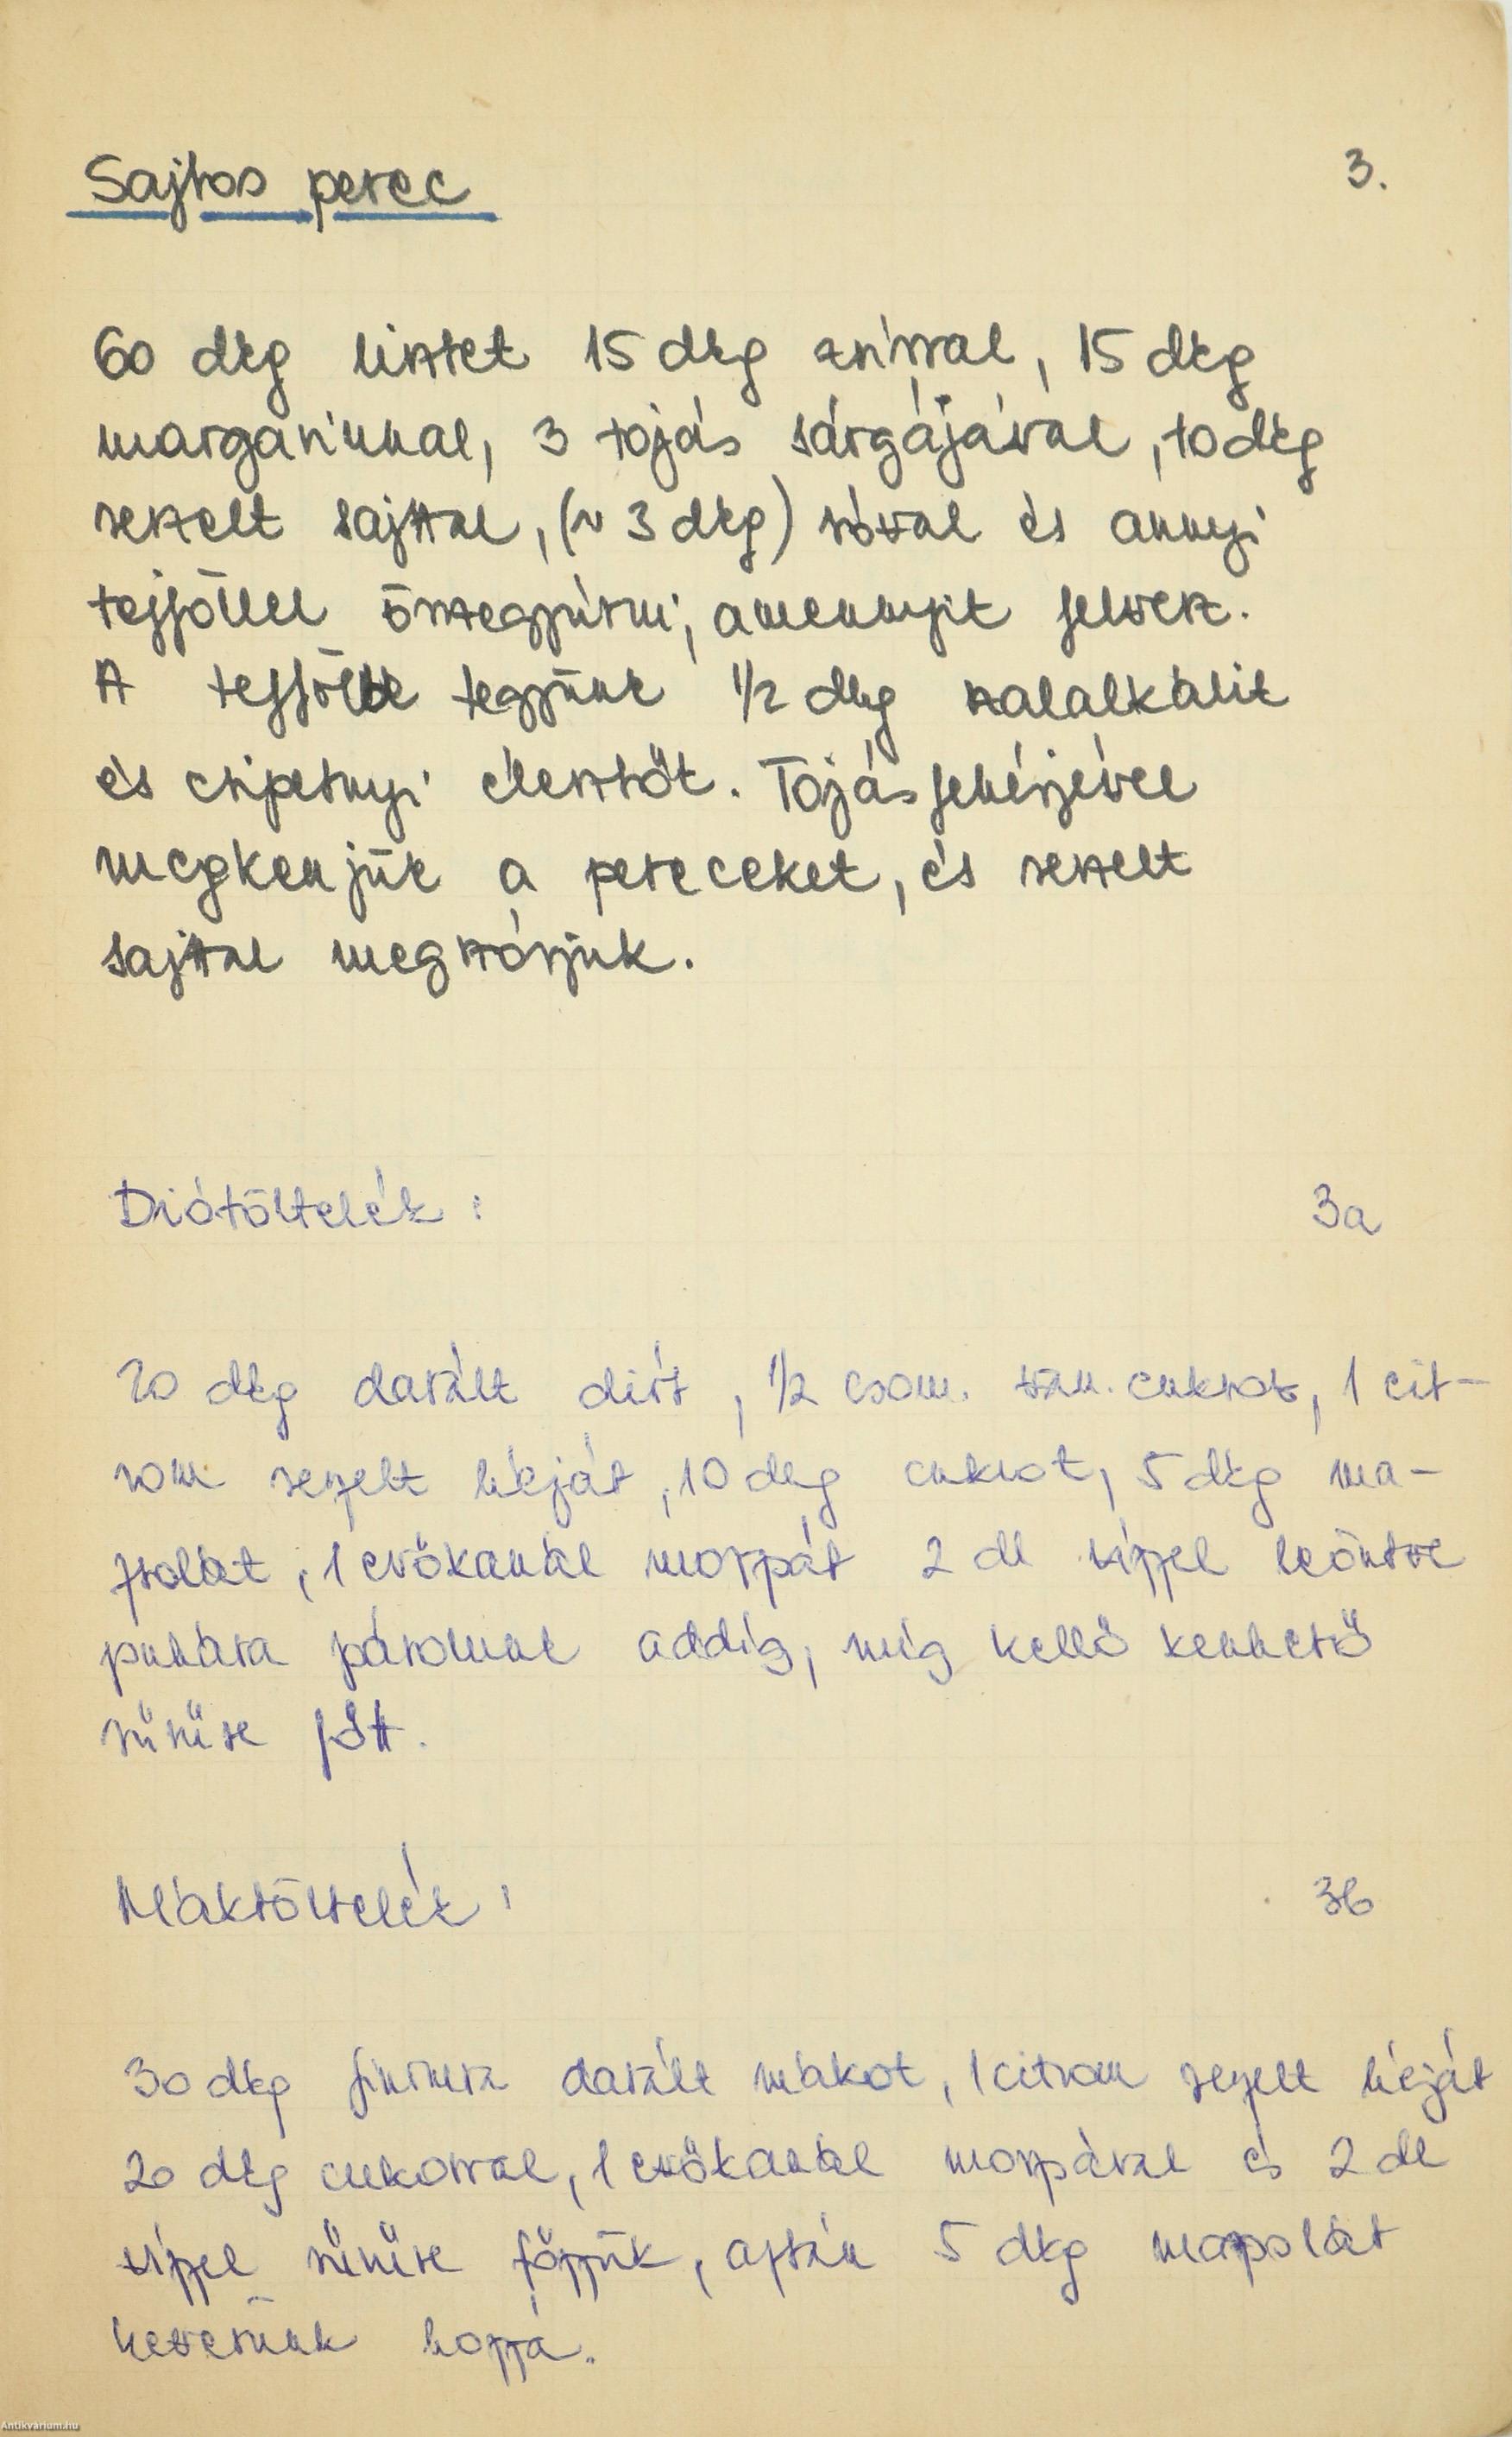 Sajtos perec
3.
60 dkg lisztet 15 dkg zsírral, 15 dkg
margarinnal, 3 tojás sárgájával, 10 dkg
reszelt sajttal, (~ 3 dkg) sóval és annyi
tejföllel összegyúrni, amennyit felvesz.
A tejfölbe tegyünk 1/2 dkg szalalkálit
és csipetnyi élesztőt. Tojásfehérjével
megkenjük a pereceket, és reszelt
sajttal megszórjuk.
Diótöltelék :
3a
20 dkg darált diót, 1/2 csom. van. cukrot, 1 cit-
rom reszelt héját, 10 dkg cukrot, 5 dkg ma-
zsolát, 1 evőkanál morzsát 2 dl vízzel leöntve
puhára párolunk addig, míg kellő kenhető
sűrűre főtt.
Máktöltelék :
3b
30 dkg finomra darált mákot, 1 citrom reszelt héját
20 dkg cukorral, 1 evőkanál morzsával és 2 dl
vízzel sűrűre főzzük, aztán 5 dkg mazsolát
keverünk hozzá.
Antikvárium.hu